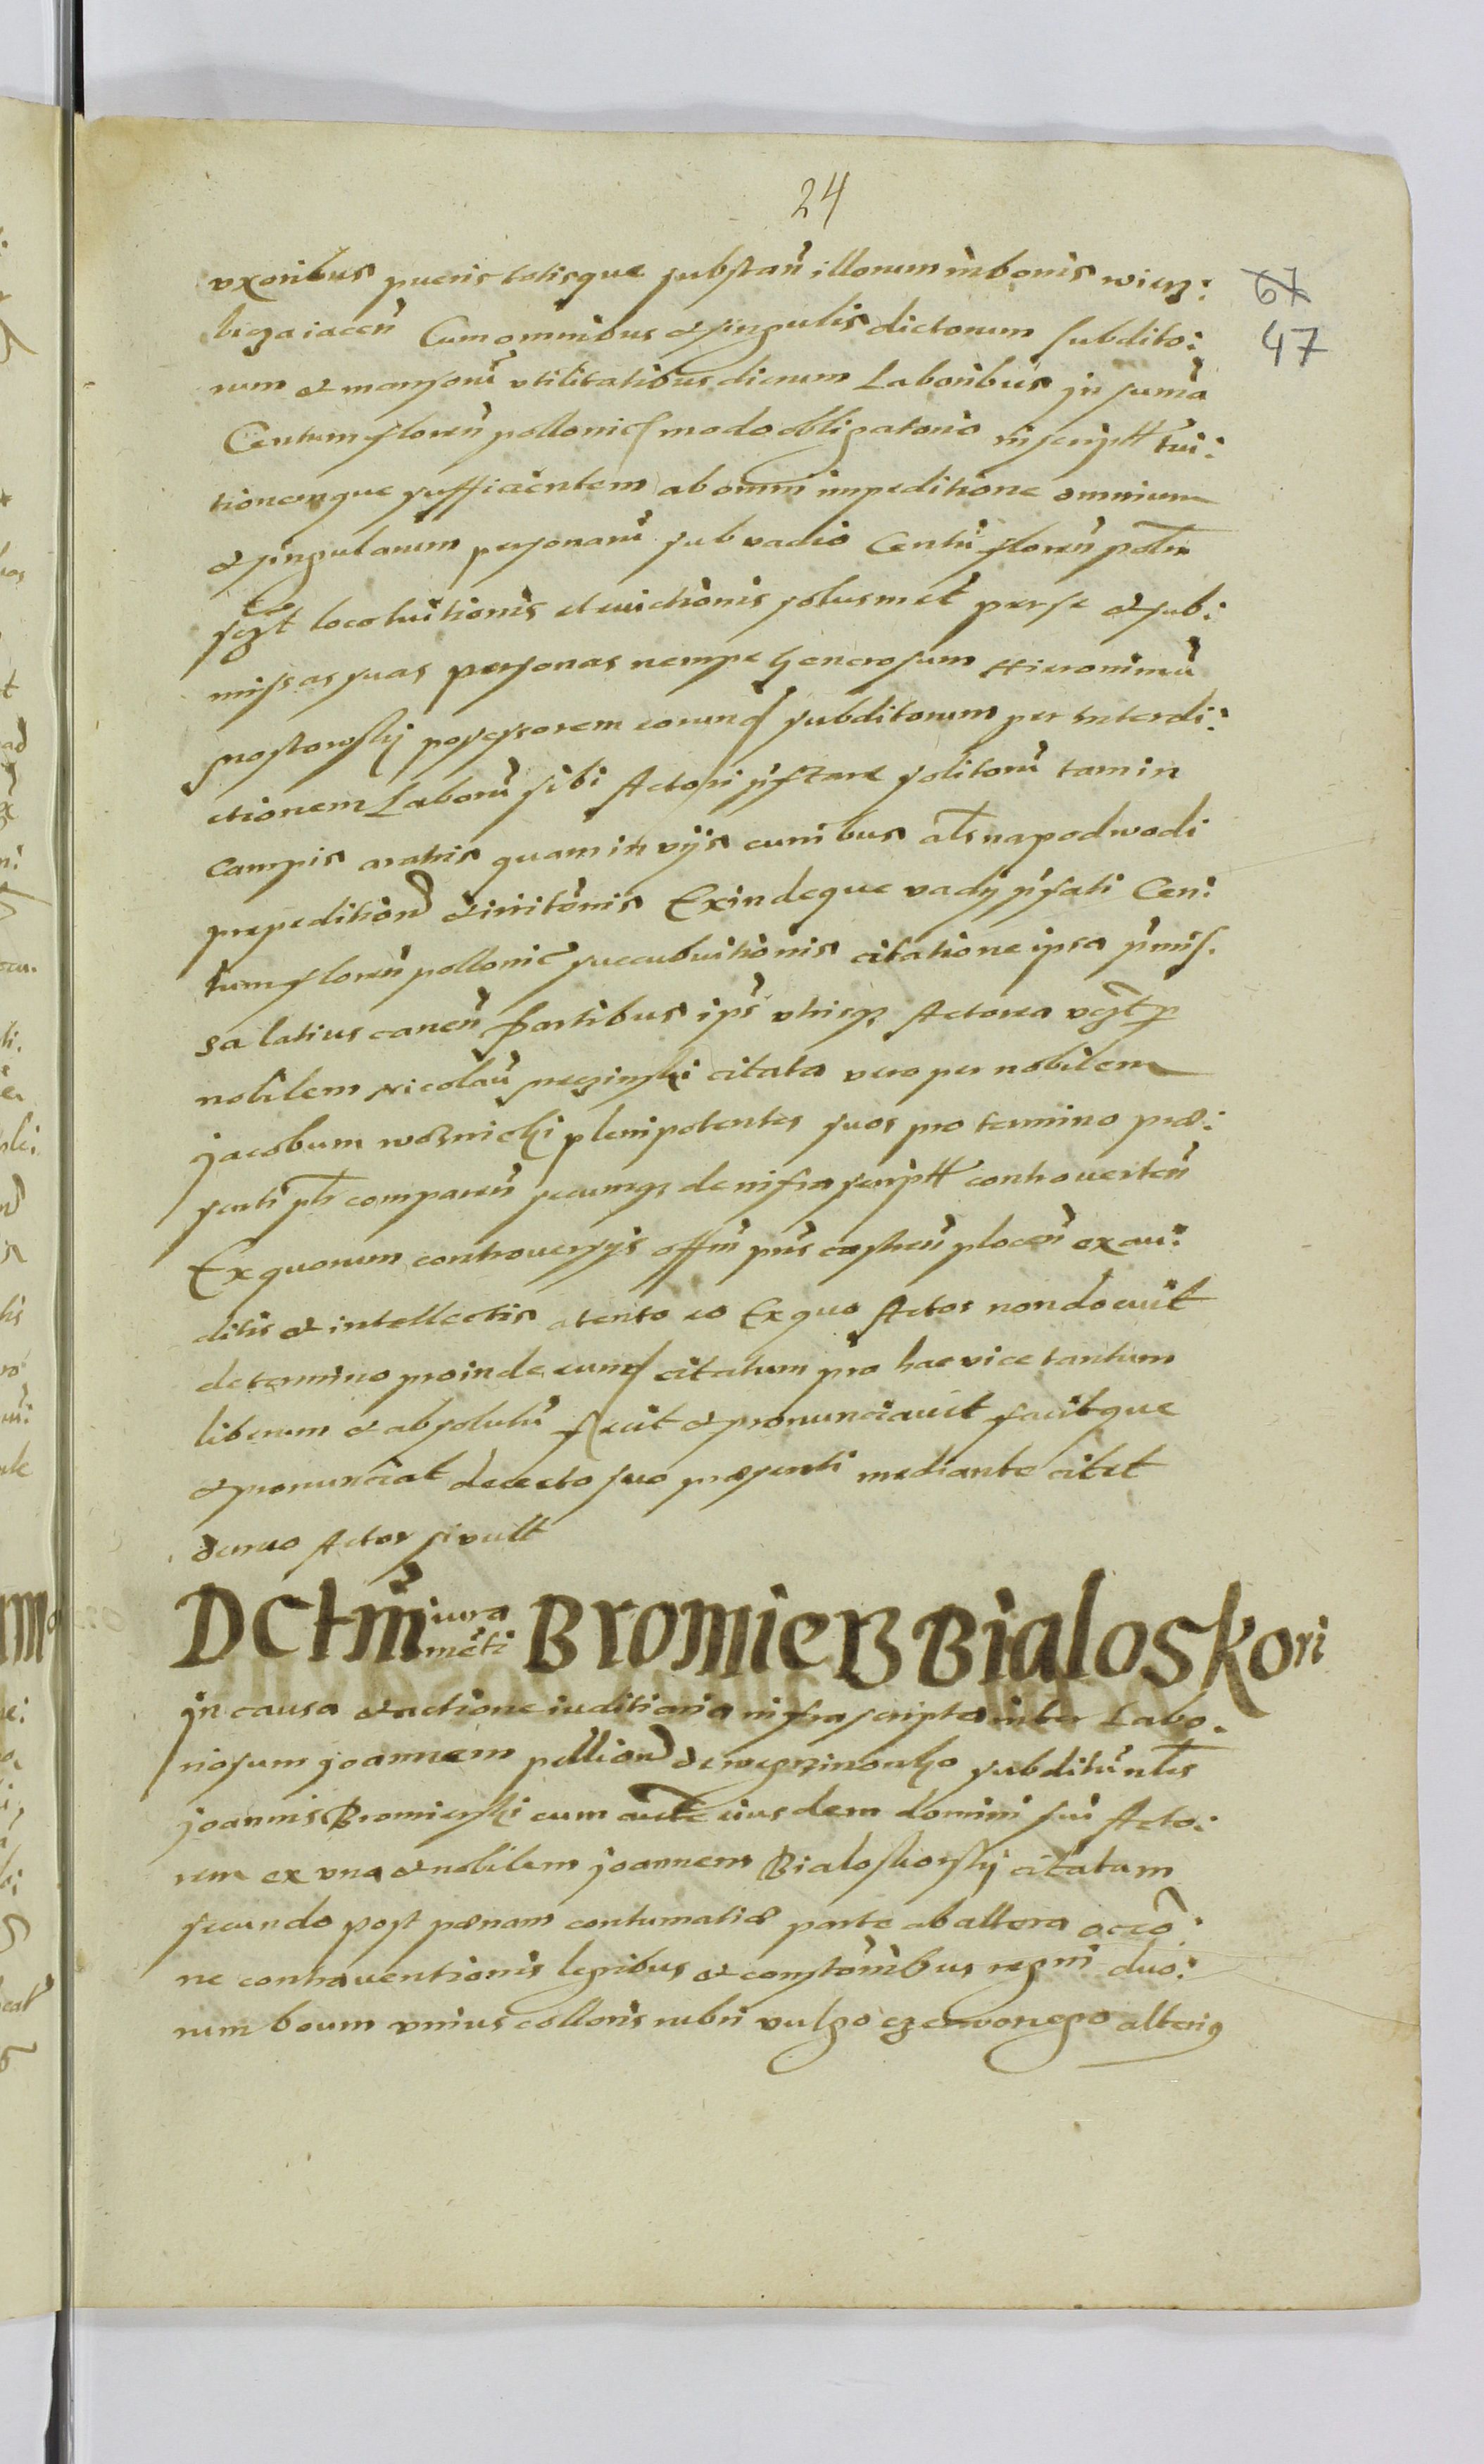 24
67
47
uxoribus pueris totisque substañ illorum in bonis wierz:
bieza iaceñ Cum omnibus et singulis dictorum subdito:
rum et mansorũ utilitatibus dierum Laboribus in suma
Centum floreñ pollonic modo obligatorio inscriptt tui:
tionemque sufficientem ab omni impeditione omnium
et singularum personarũ sub vadio Centũ floreñ polñ
loco tuitionis et evictionis solusmet per se et sub:
missas suas personas nempe generosum Hieronimũ
possessorem eorund subditorum per interdi:
ctionem Laborũ sibi Actori pstare solitorũ tam in
campis aratris quam in vijs curribus als na podwodi
prepeditione Exindeque vadij pfati Cen:
tum floreñ pollonic succubuitionis citatione ipsa pmis.
sa latius caneñ Partibus ips utrisq Actorea
nobilem Nicolaũ citata vero per nobilem
Jacobum woznicki plenipotentes suos pro termino præ:
senti compareñ secumq de infrascriptt controverteñ
Ex quorum controversijs offm pñs castreñ ploceñ exau:
ditis et intellectis atento eo Ex quo Actor non docuit
de termino proinde eund citatum pro hac vice tantum
liberum et absolutũ fecit et pronunciavit facitque
et pronunciat decreto suo præsenti mediante citet
denuo Actor si vult
Dctm̃ iura
meti Bromierz Bialoskori
In causa et actione iuditiaria infrascripta inter Labo.
riosum Joannem pellion de subditũ nlis
Joannis Bromierski cum aucte eiusdem domini sui Acto:
rem ex una et nobilem Joannem Bialoskorskj citatum
secundo post pænam contumatiæ parte ab altera
ne contraventionis legibus et constõnibus regni duo:
rum boum unius colloris rubri vulgo czerwonego alteri9